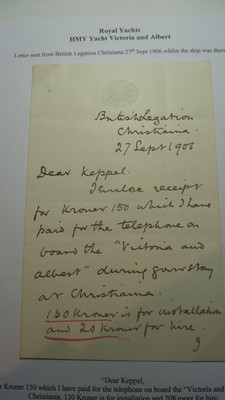 Royal Yachts
HMY Yacht Victoria and Albert
Letter sent from British Legation Christiana 27th Sept 1906 whilst the ship was there
British Legation
Christiania.
27 Sept 1906
Dear Keppel.
I enclose receipt
for Kroner 150 which I have
paid for the telephone on
board the "Victoria and
Albert" during your stay
at Christiania.
130 Kroner is for installation
and 20 Kroner for hire.
"Dear Keppel,
r Kroner 150 which I have paid for the telephone on board the "Victoria and
Christiania. 130 Kroner is for installation and 20Kroner for hire.